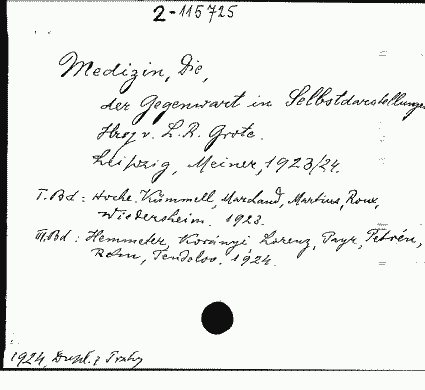 2-115725
Medizin, Die,
der Gegenwart in Selbstdarstellungen
Hrsg v. L. R. Grote.
Leipzig, Meiner, 1923/24.
I. Bd: Hoche. Kümmell, Marchand, Martius, Roux,
Wiedersheim. 1923.
III. Bd: Hemmeter, Korányi Lorenz, Payr, Petrén,
1924.
1924,